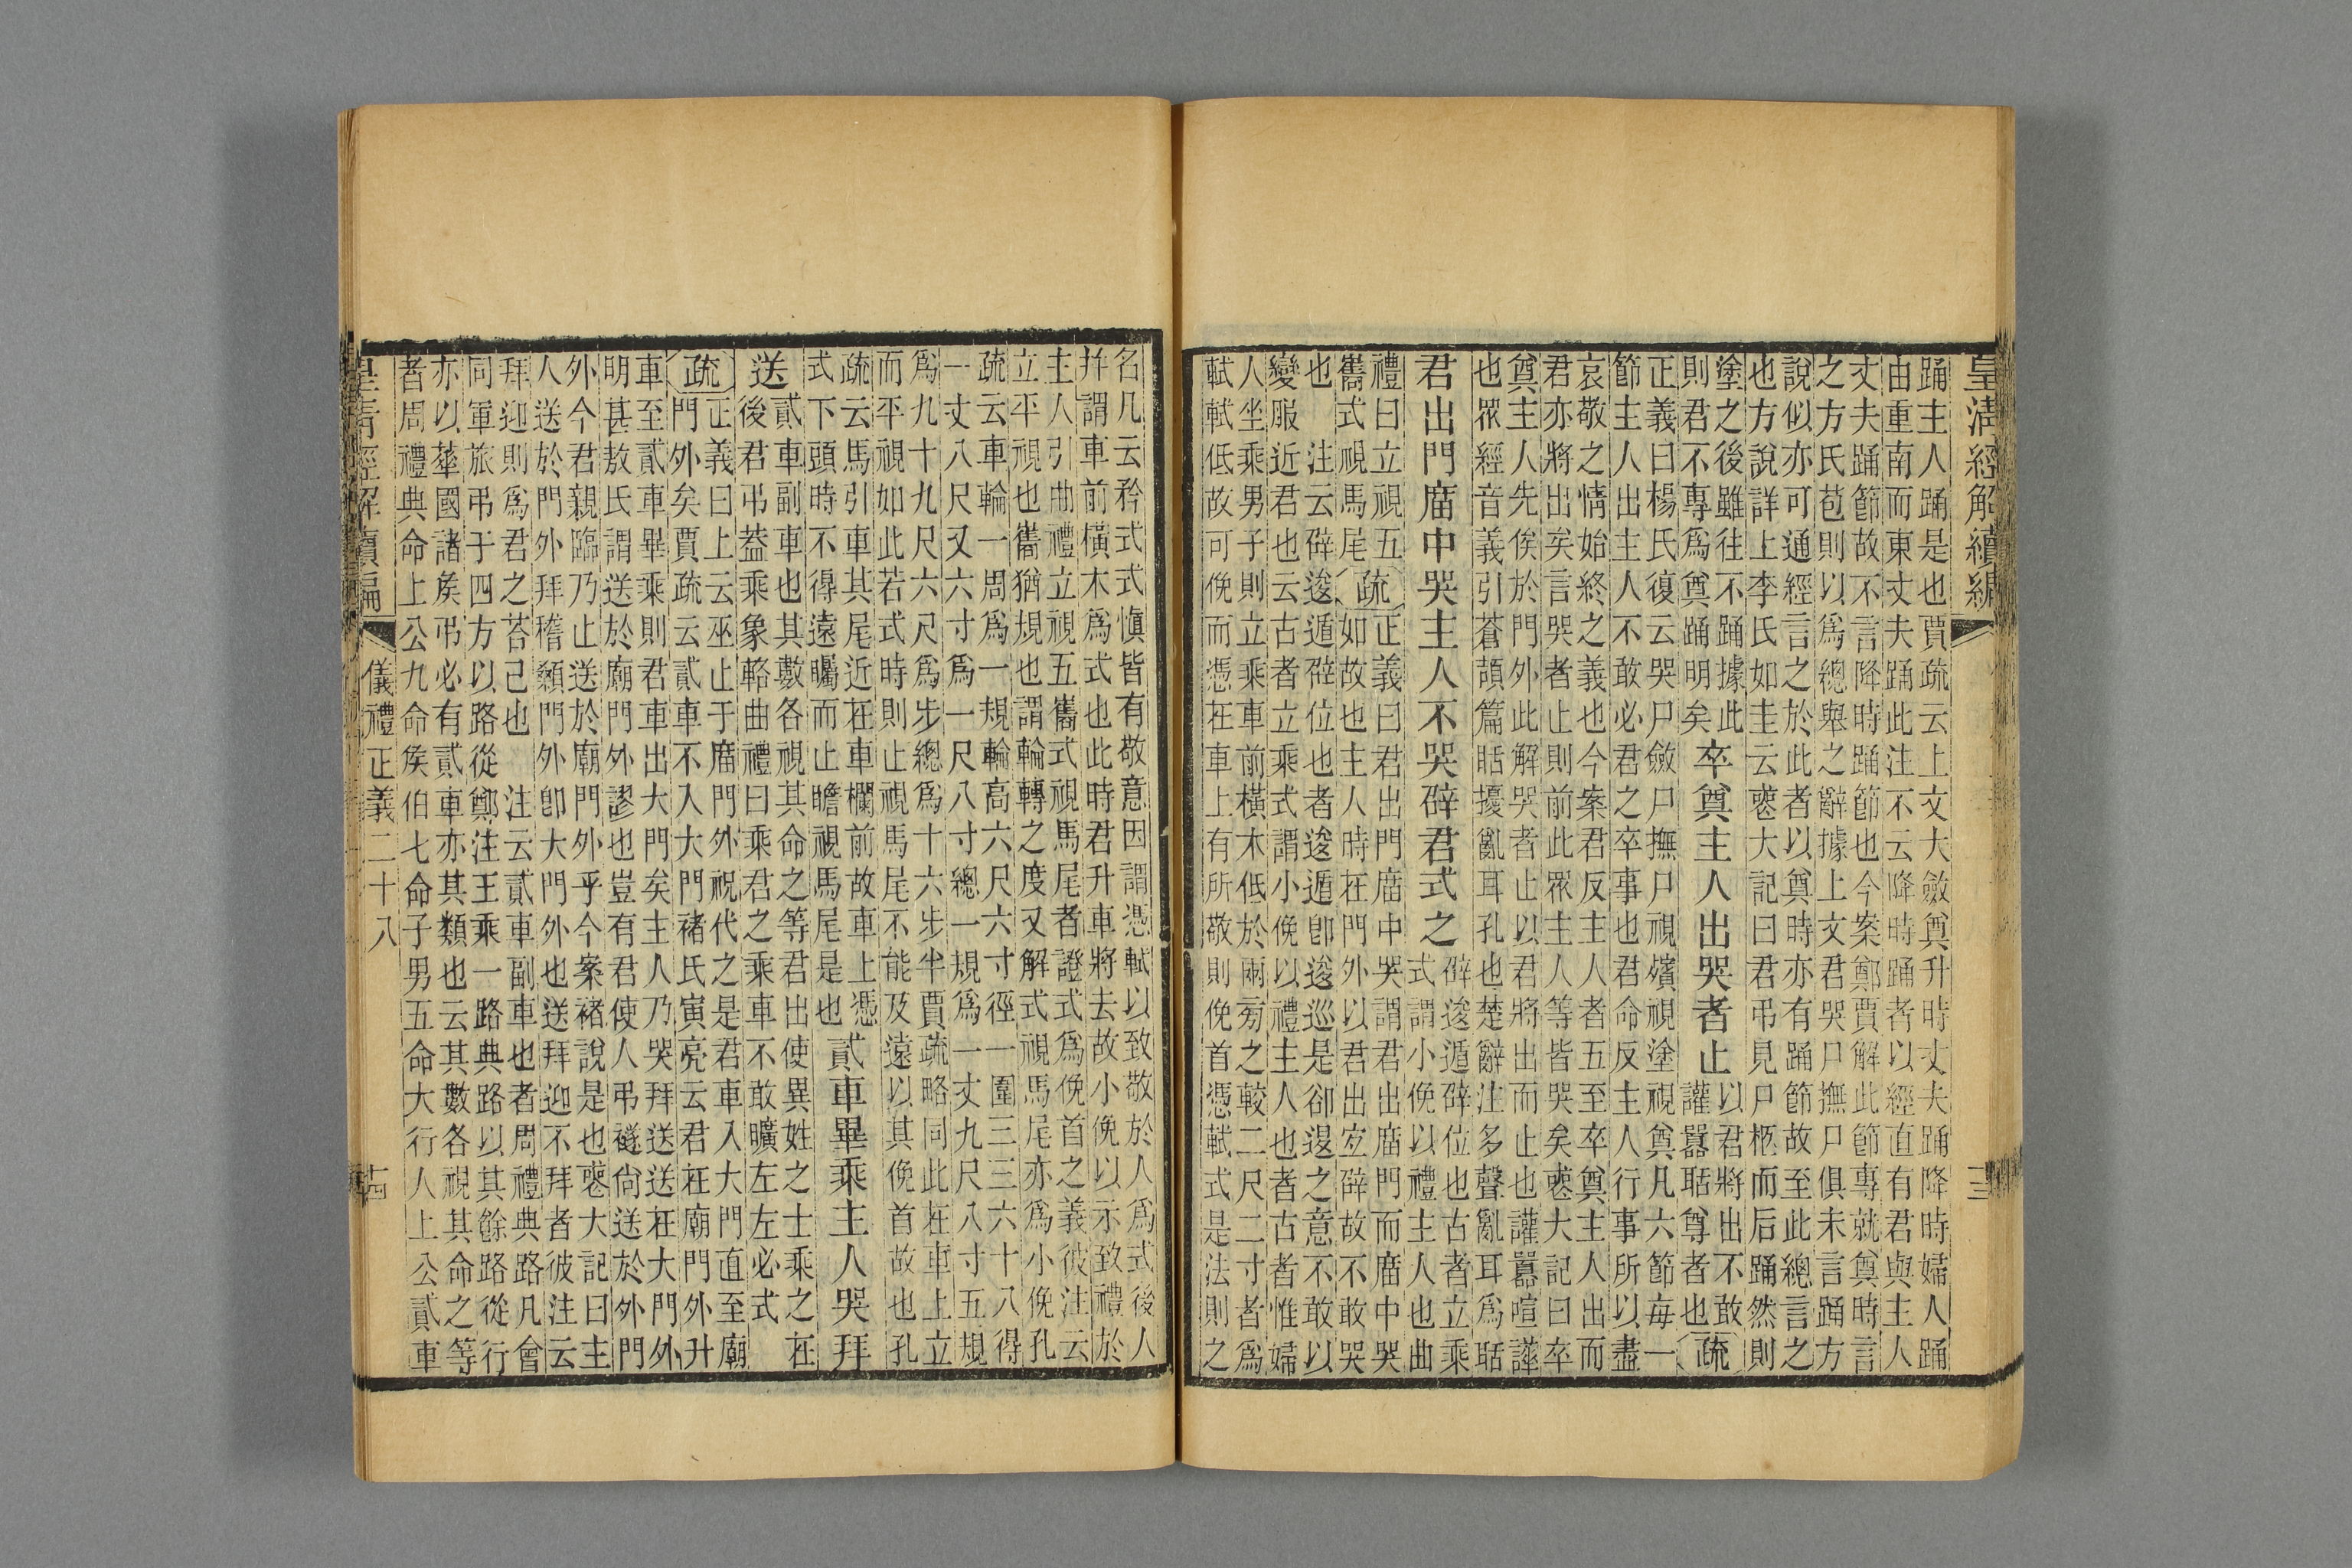 皇清經解續編 十三
踊主人踊是也賈疏云上文大斂奠升時丈夫踊降時婦人踊
由重南而東丈夫踊此注不云降時踊者以經直有君與主人
丈夫踊節故不言降時踊節也今案鄭賈解此節專就奠時言
之方氏苞則以爲總舉之辭據上文君哭尸撫尸俱未言踊方
說似亦可通經言之於此者以奠時亦有踊節故至此總言之
也方說詳上李氏如圭云䘮大記曰君弔見尸柩而后踊然則
塗之後雖往不踊據此
則君不專爲奠踊明矣
卒奠主人出哭者止
以君將出不敢
讙囂聒尊者也
疏
正義曰楊氏復云哭尸斂尸撫尸視殯視塗視奠凡六節每一
節主人出主人不敢必君之卒事也君命反主人行事所以盡
哀敬之情始終之義也今案君反主人者五至卒奠主人出而
君亦將出矣言哭者止則前此眾主人等皆哭矣䘮大記曰卒
奠主人先俟於門外此解哭者止以君將出而止也讙囂喧譁
也眾經音義引蒼頡篇聒擾亂耳孔也楚辭注多聲亂耳爲聒
君出門廟中哭主人不哭辟君式之
辟逡遁辟位也古者立乘
式謂小俛以禮主人也曲
禮曰立視五
巂式視馬尾
疏
正義曰君出門廟中哭謂君出廟門而廟中哭
如故也主人時在門外以君出宜辟故不敢哭
也 注云辟逡遁辟位也者逡遁卽逡巡是卻退之意不敢以
變服近君也云古者立乘式謂小俛以禮主人也者古者惟婦
人坐乘男子則立乘車前橫木低於兩旁之較二尺二寸者爲
軾軾低故可俛而憑在車上有所敬則俛首憑軾式是法則之
名凡云矜式式愼皆有敬意因謂憑軾以致敬於人爲式後人
并謂車前橫木爲式也此時君升車將去故小俛以示致禮於
主人引曲禮立視五巂式視馬尾者證式爲俛首之義彼注云
立平視也巂猶規也謂輪轉之度又解式視馬尾亦爲小俛孔
疏云車輪一周爲一規輪高六尺六寸徑一圍三三六十八得
一丈八尺又六寸爲一尺八寸總一規爲一丈九尺八寸五規
爲九十九尺六尺爲步總爲十六步半賈疏略同此在車上立
而平視如此若式時則止視馬尾不能及遠以其俛首故也孔
疏云馬引車其尾近在車欄前故車上憑
式下頭時不得遠矚而止瞻視馬尾是也
貳車畢乘主人哭拜
送
貳車副車也其數各視其命之等君出使異姓之士乘之在
後君弔蓋乘象輅曲禮曰乘君之乘車不敢曠左左必式
疏
正義曰上云巫止于廟門外祝代之是君車入大門直至廟
門外矣賈疏云貳車不入大門褚氏寅亮云君在廟門外升
車至貳車畢乘則君車出大門矣主人乃哭拜送送在大門外
明甚敖氏謂送於廟門外謬也豈有君使人弔襚尙送於外門
外今君親臨乃止送於廟門外乎今案褚說是也䘮大記曰主
人送於門外拜稽顙門外卽大門外也送拜迎不拜者彼注云
拜迎則爲君之荅己也 注云貳車副車也者周禮典路凡會
同軍旅弔于四方以路從鄭注王乘一路典路以其餘路從行
亦以華國諸侯弔必有貳車亦其類也云其數各視其命之等
者周禮典命上公九命侯伯七命子男五命大行人上公貳車
皇清經解續編 儀禮正義二十八 十四